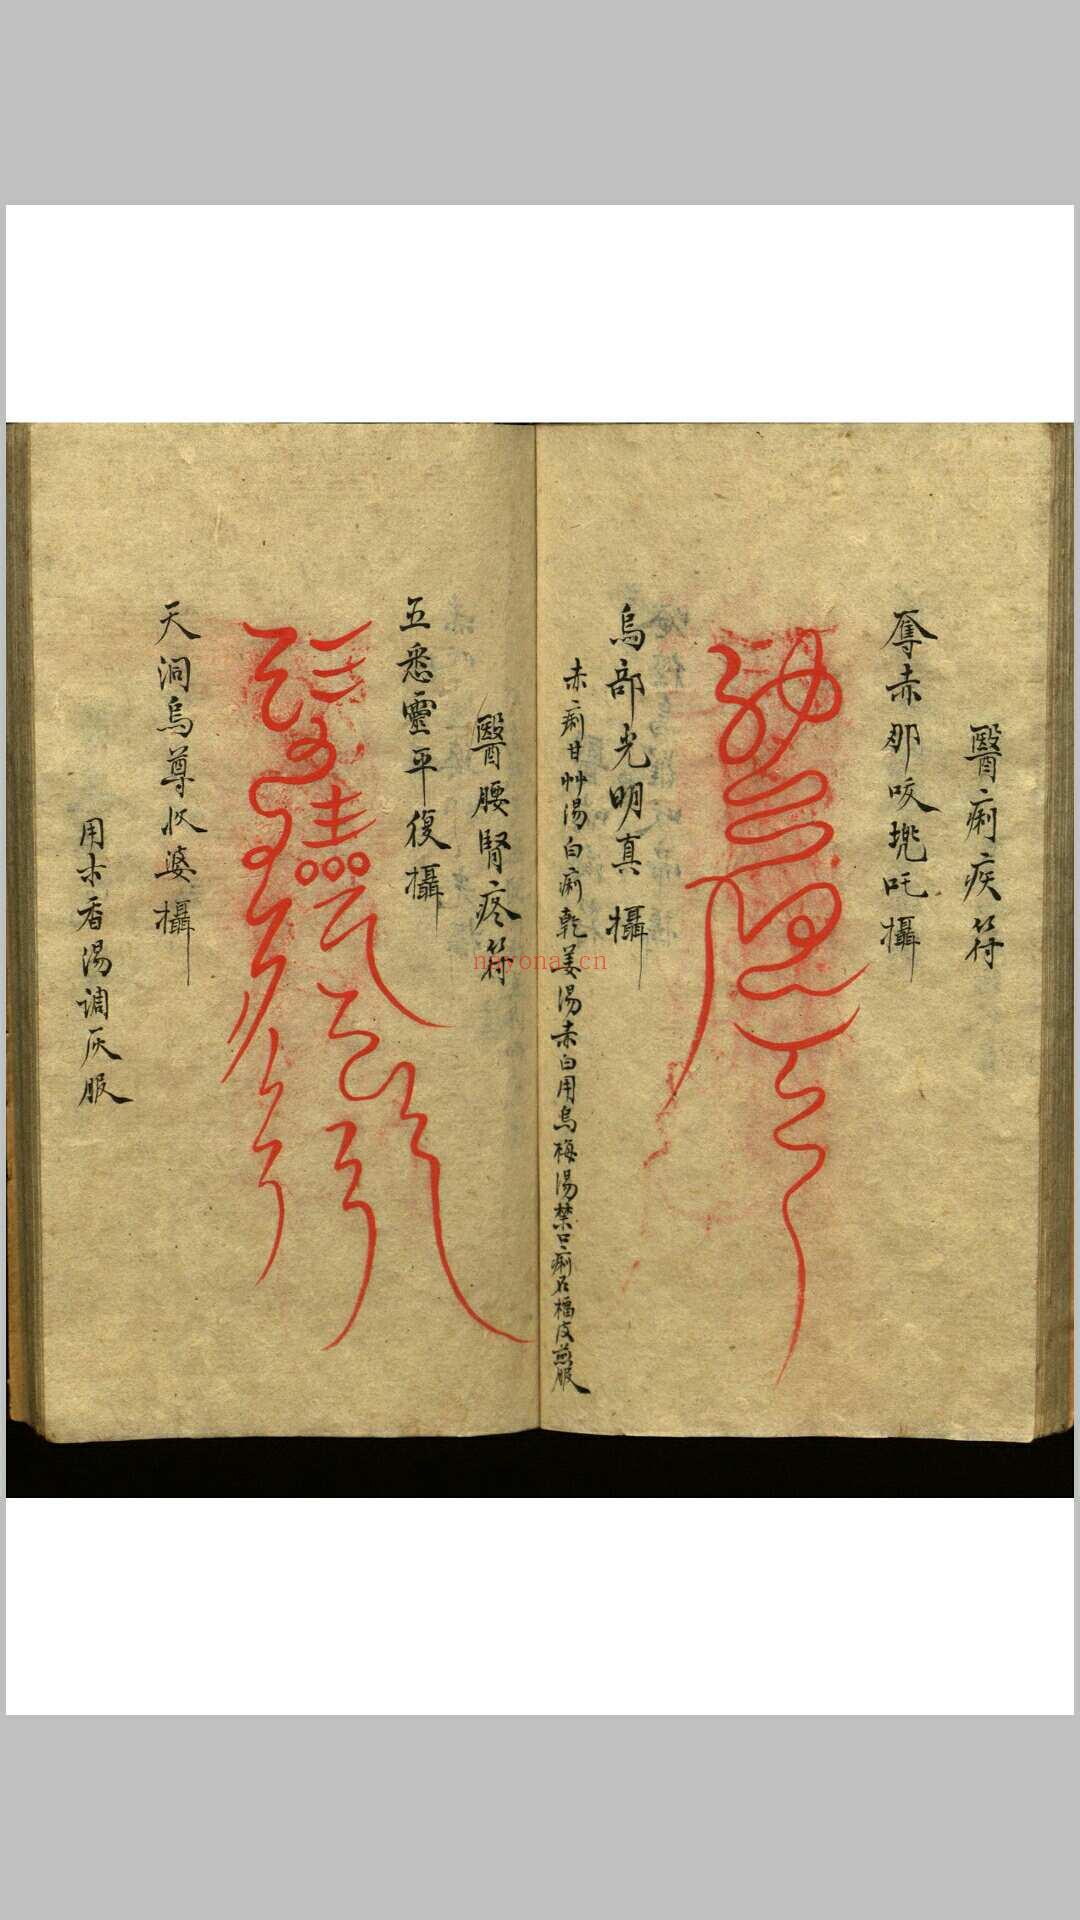 醫痢疾符
奪赤那哎攙吒攝
烏部光明真攝
赤痢甘艸湯白痢乾姜湯赤白用烏梅湯禁口痢石榴皮煎服
醫腰腎疼符
五悉靈平復攝
天洞烏尊收婆攝
用木香湯調灰服
nayona.cn